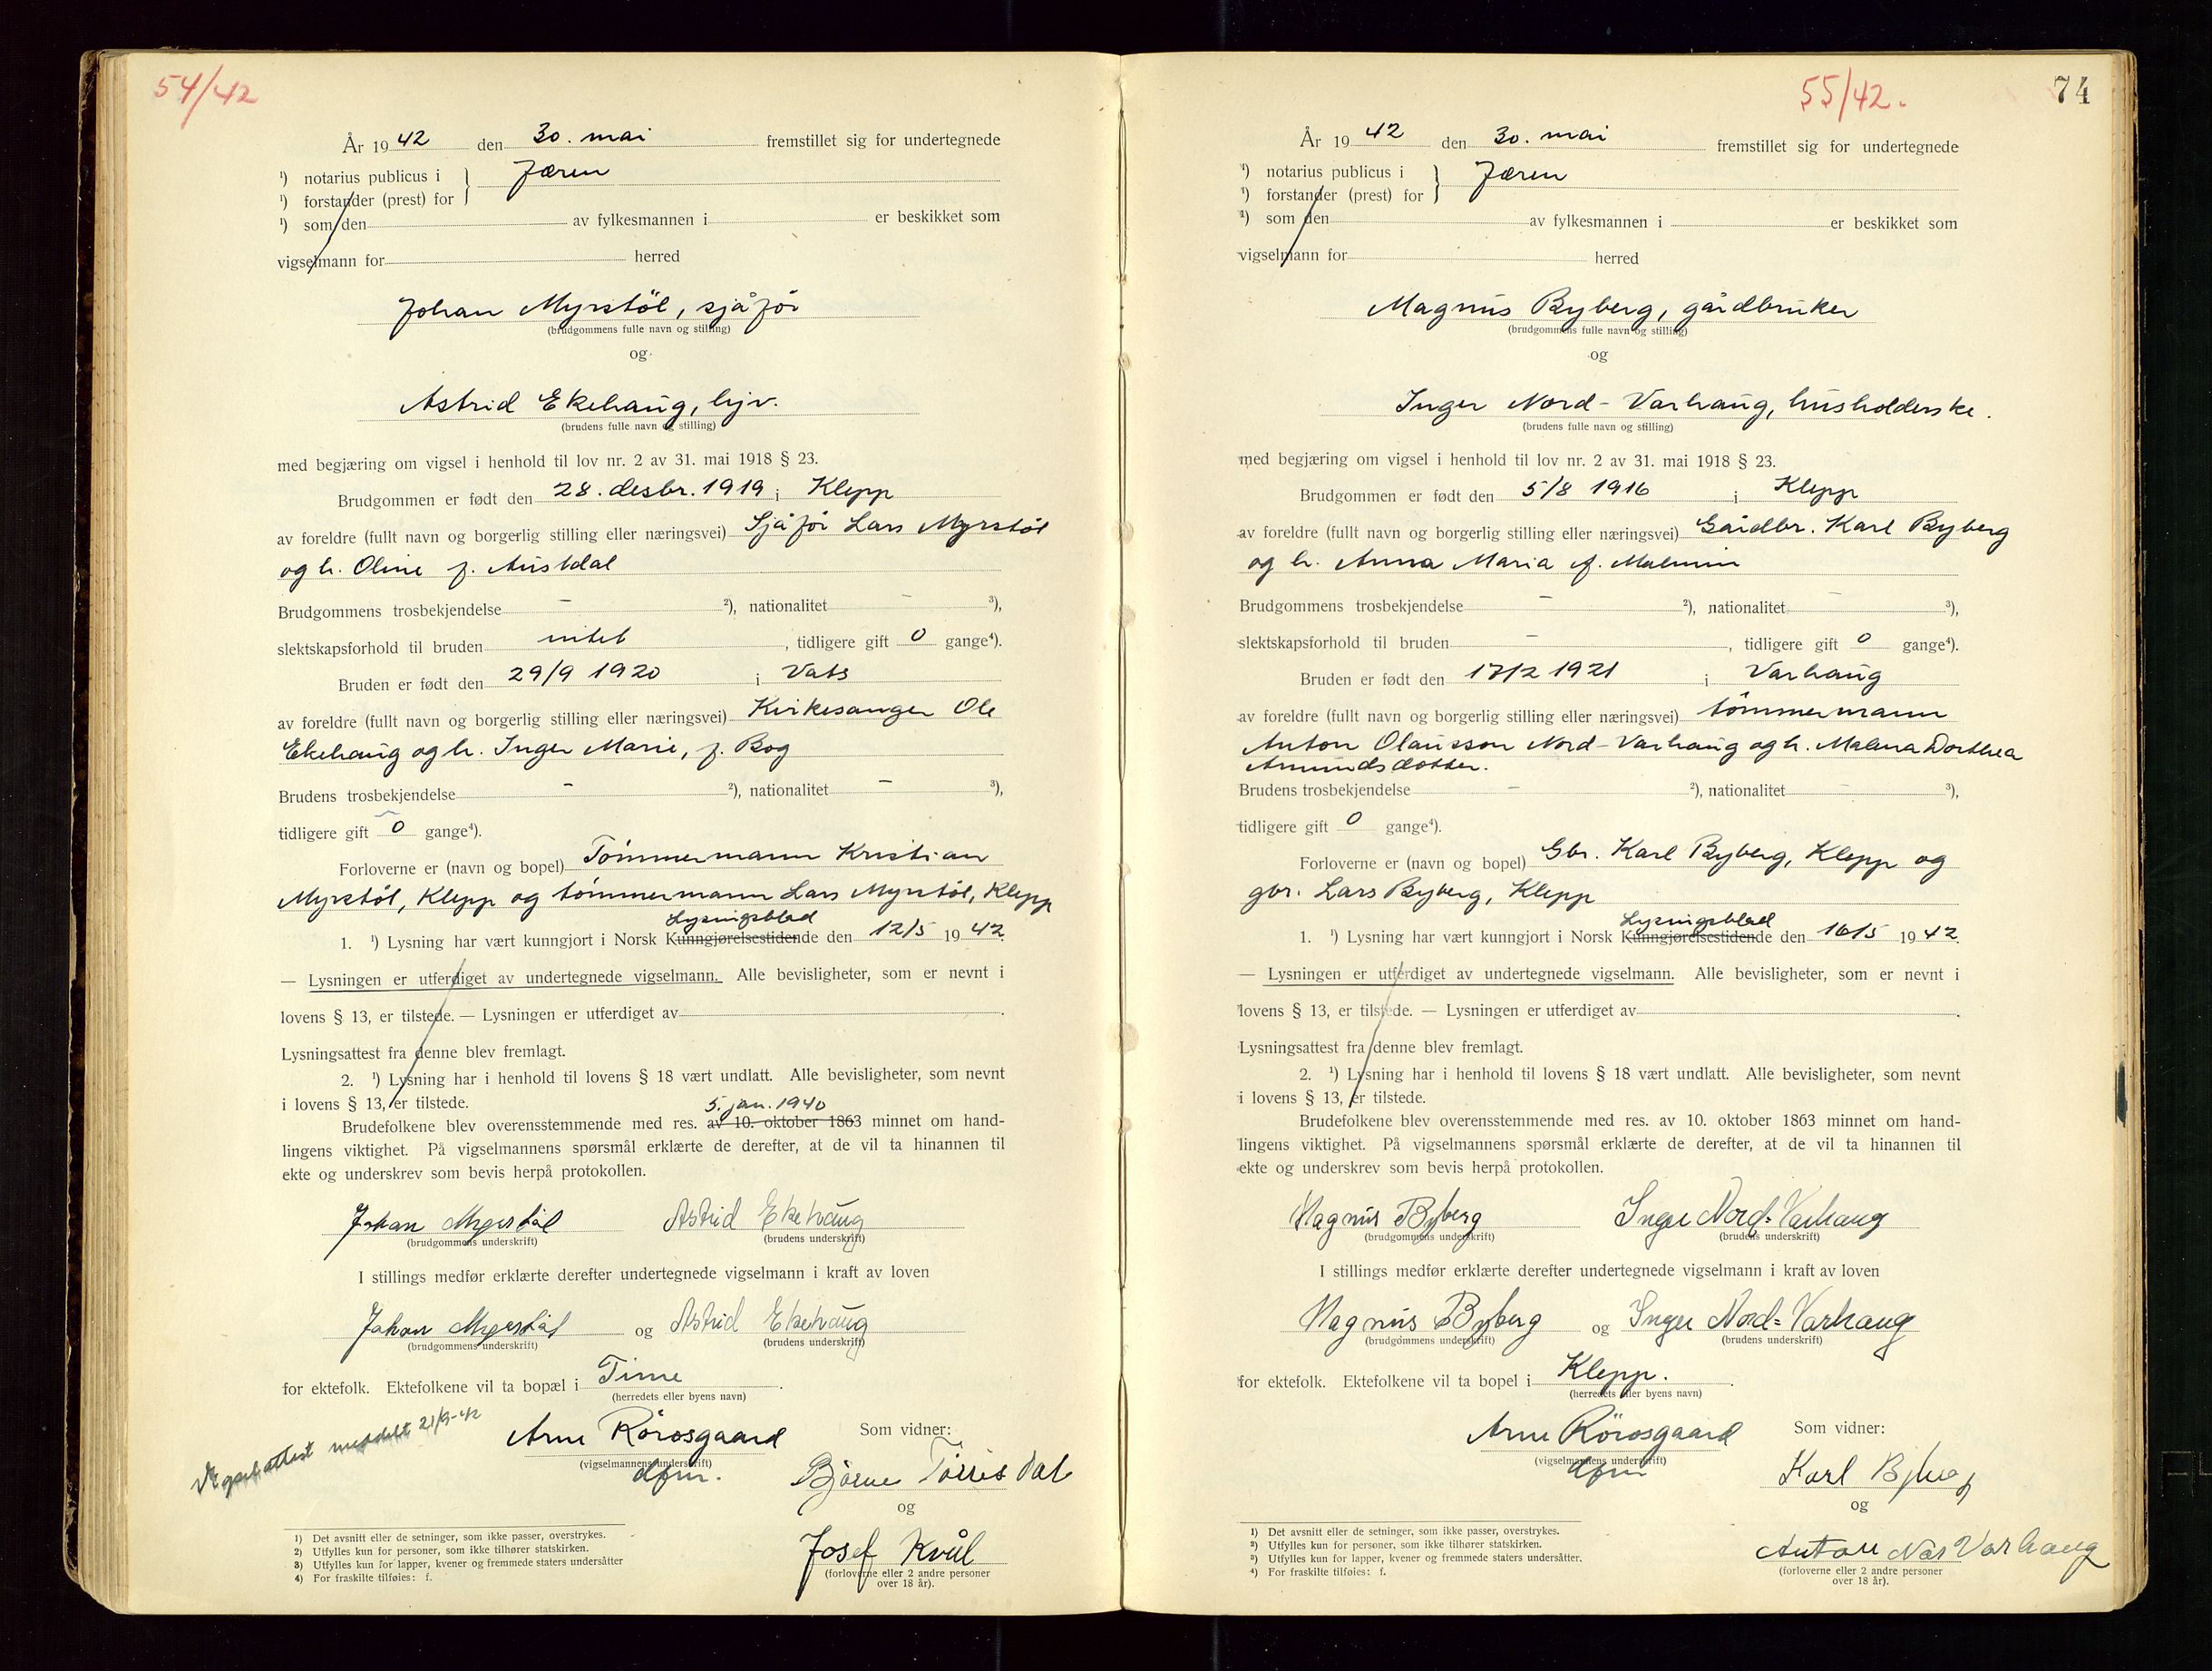 54/42
År 19 42 den 30. mai fremstillet sig for undertegnede
¹) notarius publicus i } Jæren
¹) forstander (prest) for
¹) som den av fylkesmannen i er beskikket som
vigselmann for herred
Johan Myrstöl, sjåför
(brudgommens fulle navn og stilling)
og
Astrid Ekehaug, hjv.
(brudens fulle navn og stilling)
med begjæring om vigsel i henhold til lov nr. 2 av 31. mai 1918 § 23.
Brudgommen er født den 28. desbr. 1919 i Klepp
av foreldre (fullt navn og borgerlig stilling eller næringsvei) Sjåför Lars Myrstöl
og h. Oline f. Austdal
Brudgommens trosbekjendelse – ²), nationalitet – ³),
slektskapsforhold til bruden intet, tidligere gift 0 gange⁴).
Bruden er født den 29/9 1920 i Vats
av foreldre (fullt navn og borgerlig stilling eller næringsvei) Kirkesanger Ole
Ekehaug og h. Inger Marie, f. Bog
Brudens trosbekjendelse – ²), nationalitet – ³),
tidligere gift 0 gange⁴).
Forloverne er (navn og bopel) Tömmermann Kristian
Myrstöl, Klepp og tömmermann Lars Myrstöl, Klepp
Lysningsblad
1. ¹) Lysning har vært kunngjort i Norsk Kunngjørelsestidende den 12/5 19 42.
— Lysningen er utferdiget av undertegnede vigselmann. Alle bevisligheter, som er nevnt i
lovens § 13, er tilstede. — Lysningen er utferdiget av .
Lysningsattest fra denne blev fremlagt.
2. ¹) Lysning har i henhold til lovens § 18 vært undlatt. Alle bevisligheter, som nevnt
i lovens § 13, er tilstede.
5. jan. 1940
Brudefolkene blev overensstemmende med res. av 10. oktober 1863 minnet om hand-
lingens viktighet. På vigselmannens spørsmål erklærte de derefter, at de vil ta hinannen til
ekte og underskrev som bevis herpå protokollen.
Johan Myrstöl Astrid Ekehaug
(brudgommens underskrift) (brudens underskrift)
I stillings medfør erklærte derefter undertegnede vigselmann i kraft av loven
Johan Myrstöl og Astrid Ekehaug
(brudgommens underskrift) (brudens underskrift)
for ektefolk. Ektefolkene vil ta bopæl i Time.
(herredets eller byens navn)
Vigselsattest meddelt 21/9-42
Arne Rörosgaard Som vidner:
(vigselmannens underskrift)
dfm. Bjarne Torrisdal
og
Josef Kvål
(forloverne eller 2 andre personer
over 18 år).
1) Det avsnitt eller de setninger, som ikke passer, overstrykes.
2) Utfylles kun for personer, som ikke tilhører statskirken.
3) Utfylles kun for lapper, kvener og fremmede staters undersåtter
4) For fraskilte tilføies: f.
55/42. 74
År 19 42 den 30. mai fremstillet sig for undertegnede
¹) notarius publicus i } Jæren
¹) forstander (prest) for
¹) som den av fylkesmannen i er beskikket som
vigselmann for herred
Magnus Byberg, gårdbruker
(brudgommens fulle navn og stilling)
og
Inger Nord-Varhaug, husholderske.
(brudens fulle navn og stilling)
med begjæring om vigsel i henhold til lov nr. 2 av 31. mai 1918 § 23.
Brudgommen er født den 5/8 1916 i Klepp
av foreldre (fullt navn og borgerlig stilling eller næringsvei) Gårdbr. Karl Byberg
og h. Anna Maria f. Malmin
Brudgommens trosbekjendelse – ²), nationalitet – ³),
slektskapsforhold til bruden –, tidligere gift 0 gange⁴).
Bruden er født den 17/2 1921 i Varhaug
av foreldre (fullt navn og borgerlig stilling eller næringsvei) tömmermann
Anton Olausson Nord-Varhaug og h. Malena Dorthea
Amundsdotter.
Brudens trosbekjendelse – ²), nationalitet – ³),
tidligere gift 0 gange⁴).
Forloverne er (navn og bopel) Gbr. Karl Byberg, Klepp og
gbr. Lars Byberg, Klepp
Lysningsblad
1. ¹) Lysning har vært kunngjort i Norsk Kunngjørelsestidende den 16/5 19 42.
— Lysningen er utferdiget av undertegnede vigselmann. Alle bevisligheter, som er nevnt i
lovens § 13, er tilstede. — Lysningen er utferdiget av .
Lysningsattest fra denne blev fremlagt.
2. ¹) Lysning har i henhold til lovens § 18 vært undlatt. Alle bevisligheter, som nevnt
i lovens § 13, er tilstede.
Brudefolkene blev overensstemmende med res. av 10. oktober 1863 minnet om hand-
lingens viktighet. På vigselmannens spørsmål erklærte de derefter, at de vil ta hinannen til
ekte og underskrev som bevis herpå protokollen.
Magnus Byberg Inger Nord-Varhaug
(brudgommens underskrift) (brudens underskrift)
I stillings medfør erklærte derefter undertegnede vigselmann i kraft av loven
Magnus Byberg og Inger Nord-Varhaug
(brudgommens underskrift) (brudens underskrift)
for ektefolk. Ektefolkene vil ta bopel i Klepp.
(herredets eller byens navn)
Arne Rörosgaard Som vidner:
(vigselmannens underskrift)
dfm Karl Byberg
og
Anton Nor Varhaug
(forloverne eller 2 andre personer
over 18 år).
1) Det avsnitt eller de setninger, som ikke passer, overstrykes.
2) Utfylles kun for personer, som ikke tilhører statskirken.
3) Utfylles kun for lapper, kvener og fremmede staters undersåtter.
4) For fraskilte tilføies: f.